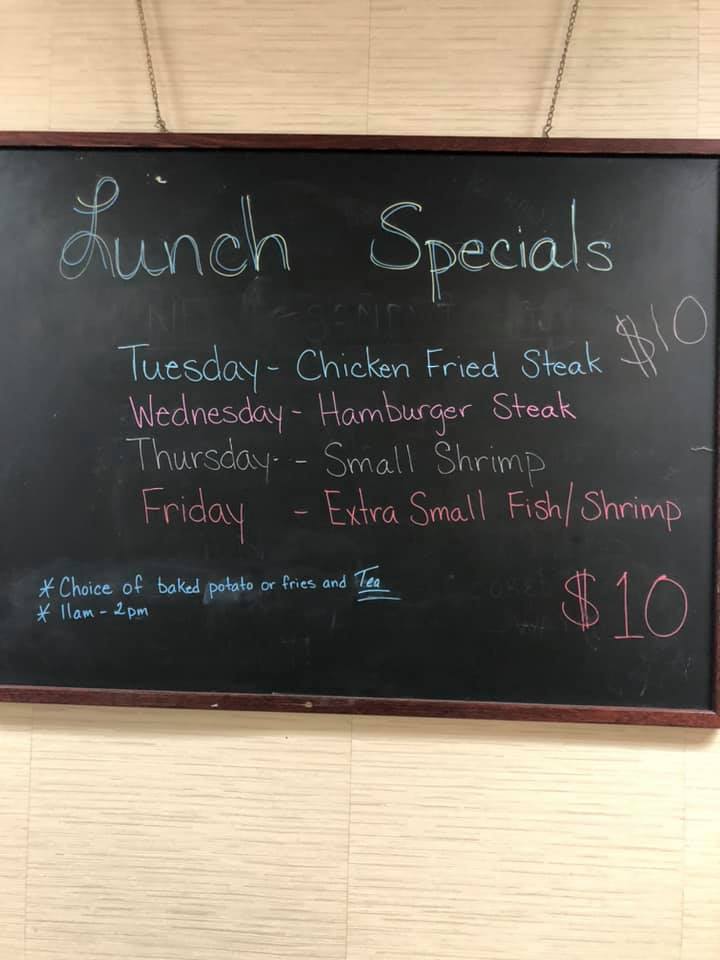 Lunch Specials
$10
Tuesday - Chicken Fried Steak
Wednesday - Hamburger Steak
Thursday - Small Shrimp
Friday - Extra Small Fish/Shrimp
* Choice of baked potato or fries and Tea
* 11am - 2pm
$10